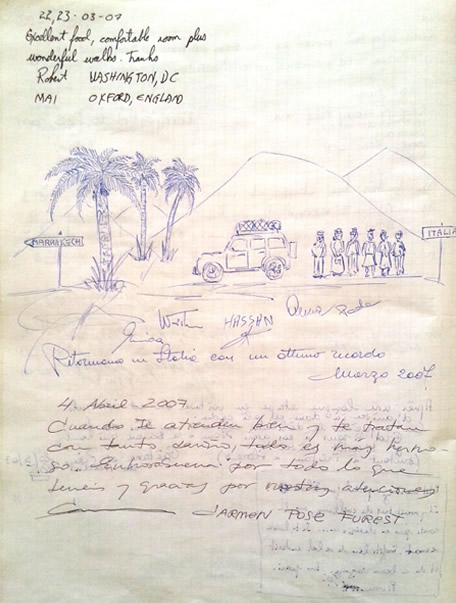 22,23-03-07
Excellent food, comfortable room plus
wonderful walks. Thanks
Robert WASHINGTON, DC
MAI OXFORD, ENGLAND
MARRAKECH
ITALIA
HASSAN
Ritorniamo in Italia con un ottimo ricordo
Marzo 2007
4 Abril 2007
Cuando te atienden bien y te tratan
con tanto cariño, todo es muy hermo-
so. Enhorabuena por todo lo que
teneis y gracias por
CARMEN POSE FUREST